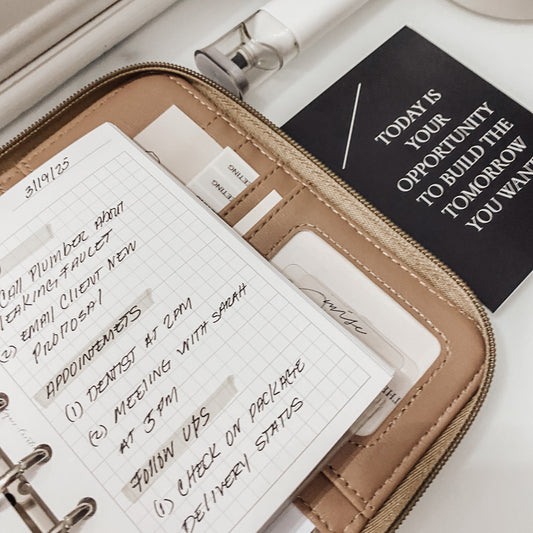 3/19/25
CALL PLUMBER ABOUT
LEAKING FAUCET
(2) EMAIL CLIENT NEW
PROPOSAL
APPOINTEMETS
(1) DENTIST AT 2PM
(2) MEETING WITH SARAH
AT 5PM
FOLLOW UPS
(1) CHECK ON PACKAGE
DELIVERY STATUS
MEETING
MEETING
TODAY IS
YOUR
OPPORTUNITY
TO BUILD THE
TOMORROW
YOU WANT